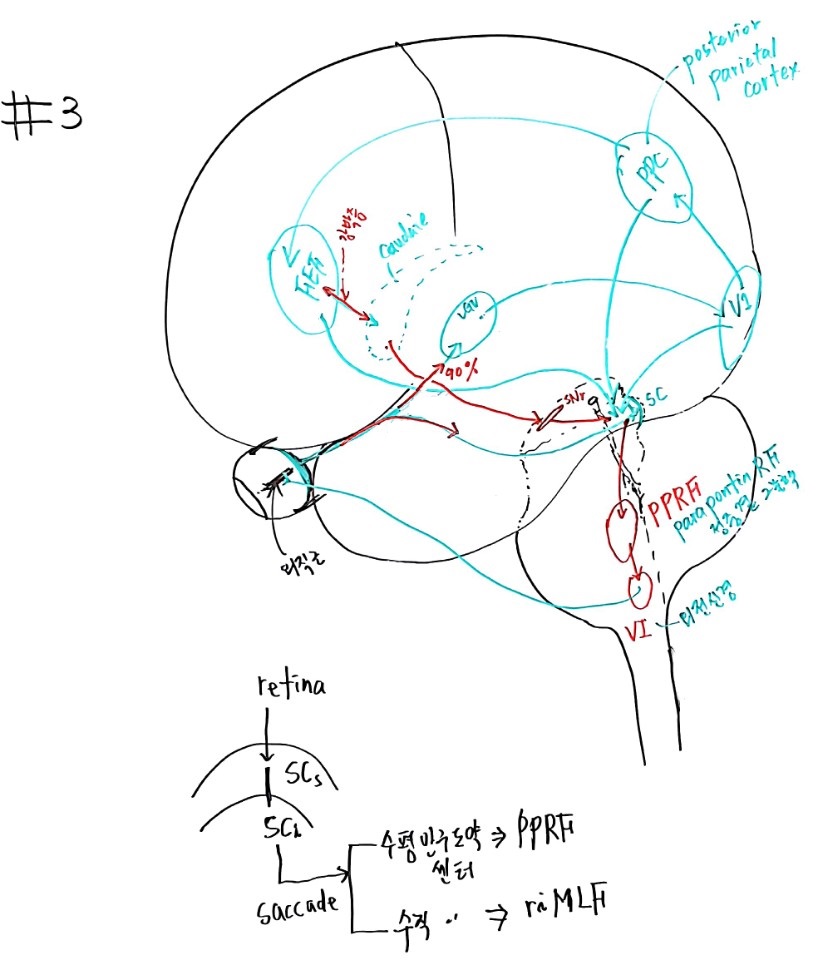 #3
posterior
parietal
cortex
PPC
caudate
FEF
LGN
V1
90%
SNr
SC
PPRF
parapontin RF
외직근
VI
외전신경
retina
SCs
SCi
saccade
수평안구도약 ⇒ PPRF
센터
수직 〃 ⇒ riMLF